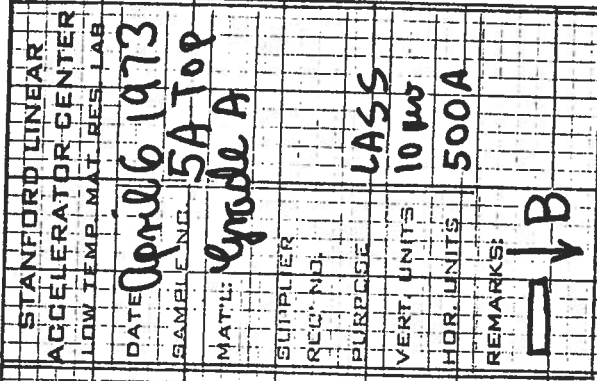 STANFORD LINEAR
ACCELERATOR CENTER
LOW TEMP MAT. RES. LAB
DATE April 6 1973
SAMPLE NO. 5A Top
MAT'L: Grade A
SUPPLIER
REC. NO.
PURPOSE LASS
VERT. UNITS 10 μv
HOR. UNITS 500A
REMARKS:
B